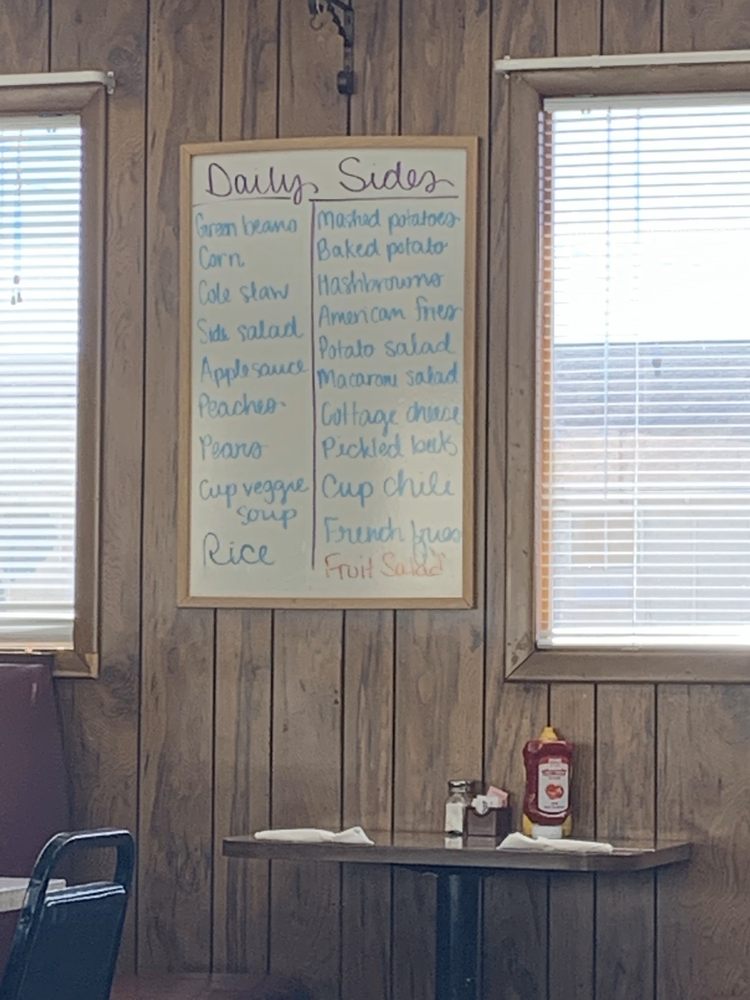 Daily Sides
Green beans
Corn
Cole slaw
Side salad
Applesauce
Peaches
Pears
Cup veggie
soup
Rice
Mashed potatoes
Baked potato
Hashbrowns
American fries
Potato salad
Macaroni salad
Cottage cheese
Pickled beets
Cup chili
French fries
Fruit Salad